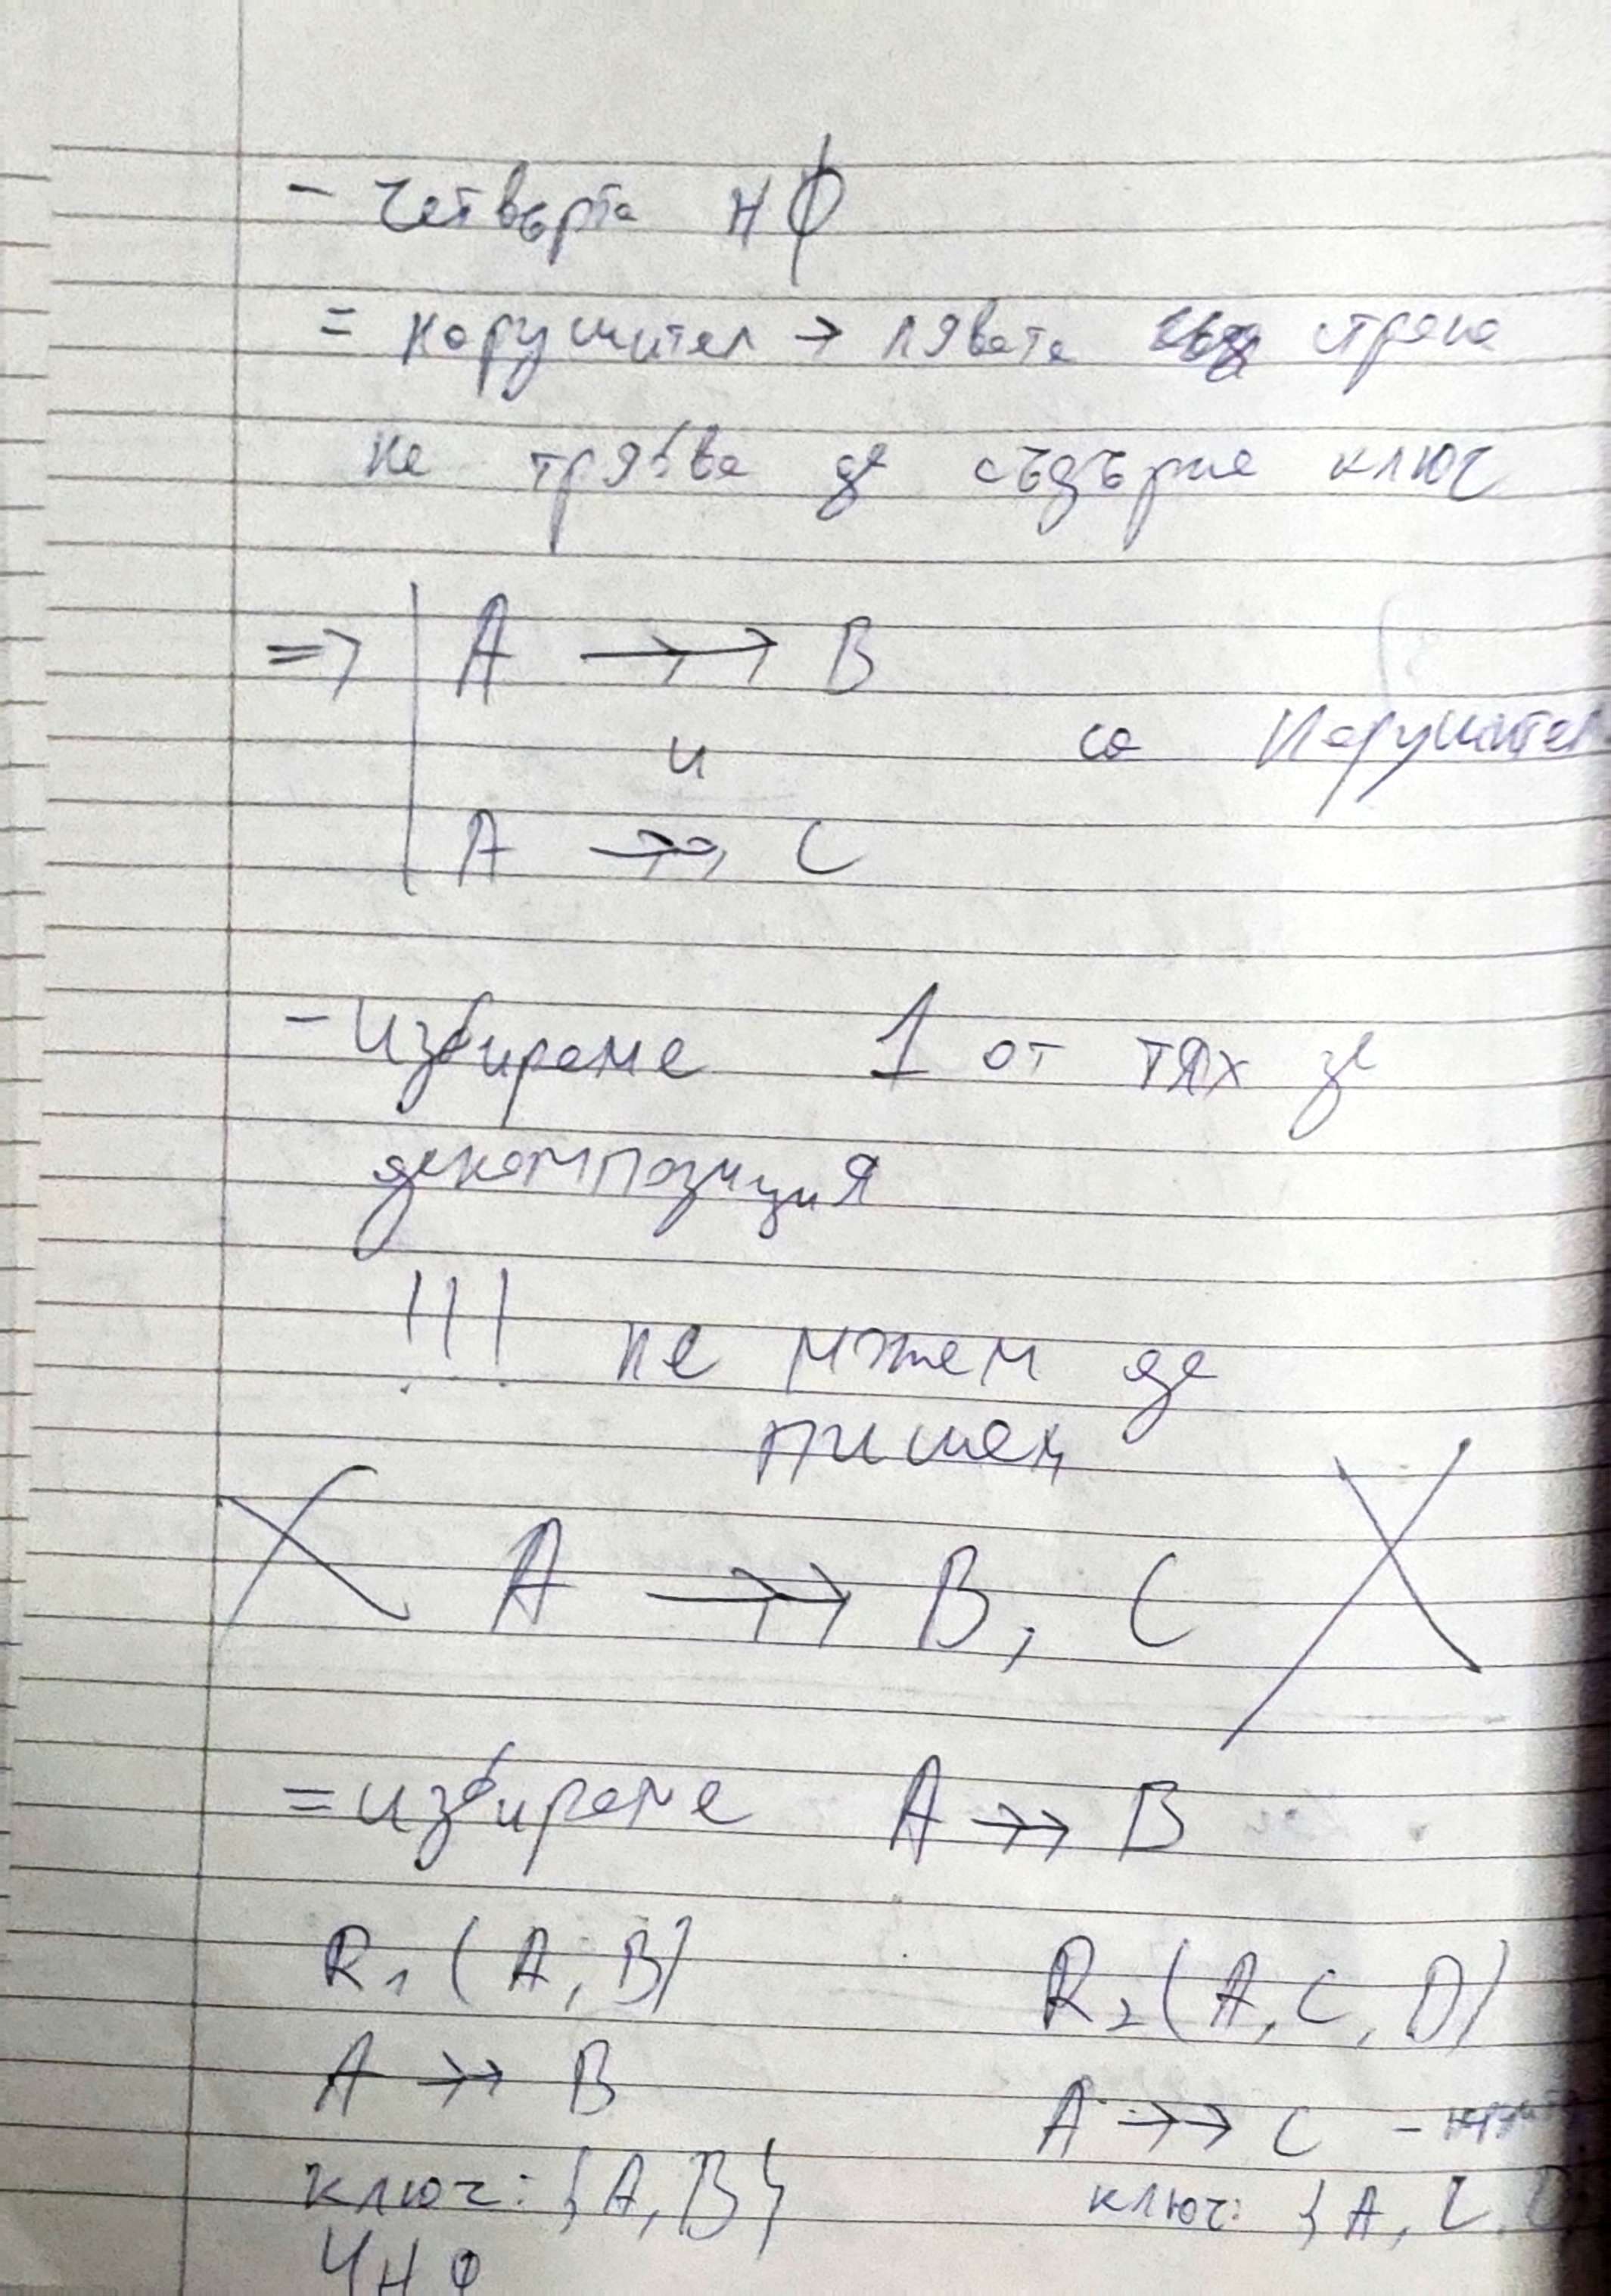 - Четвърта НФ
= нарушител → лявата страна
не трябва да съдържа ключ
=> | A →→ B
и са Нарушител
A →→ C
- Избираме 1 от тях за
декомпозиция
!!! не можем да
пишем
A →→ B, C
= избираме A →→ B
R1 (A, B) R2 (A, C, D)
A →→ B A →→ C -
ключ: {A, B} ключ: {A, C,
4НФ